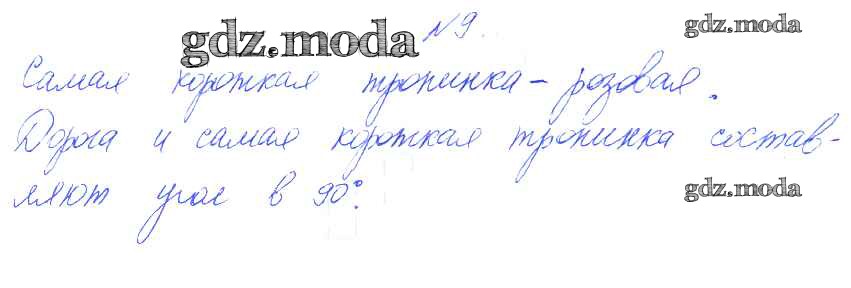 №9.
gdz.moda
gdz.moda
Самая короткая тропинка – розовая.
Дорога и самая короткая тропинка состав-
ляют угол в 90°.
gdz.moda